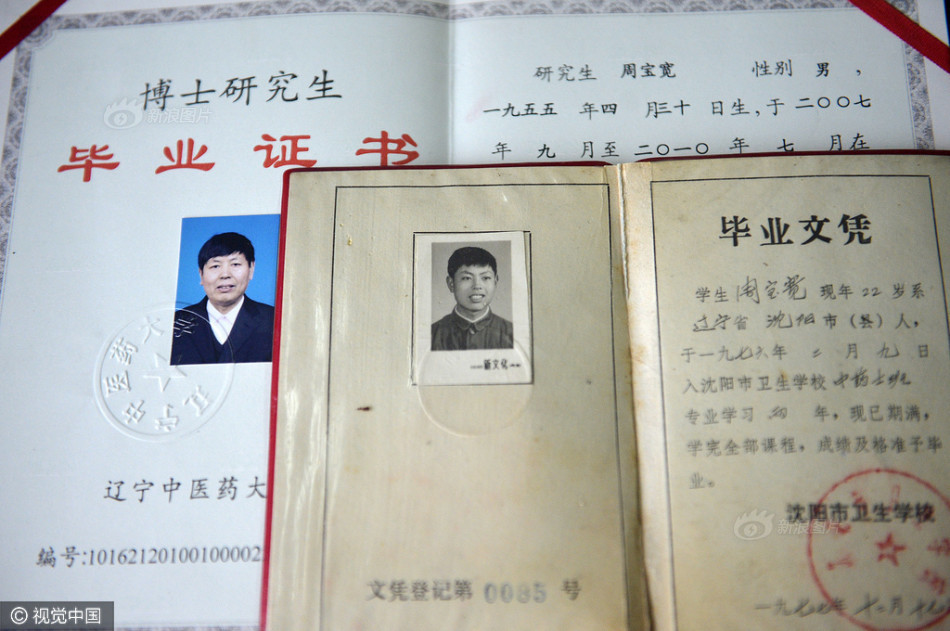 博士研究生
毕业证书
辽宁中医药大
编号:10162120100100002
研究生 周宝宽 性别 男,
一九五五 年四 月三十 日生,于 二〇〇七
年 九 月至 二〇一〇 年 七 月在
新文化
文凭登记第 0085 号
毕业文凭
学生周宝宽 现年 22 岁系
辽宁省 沈阳 市(县)人,
于一九七六年 二 月 九 日
入沈阳市卫生学校 中药士班
专业学习 年,现已期满,
学完全部课程,成绩及格准予毕
业。
沈阳市卫生学校
一九七七年 十二月
新浪图片
新浪图片
© 视觉中国